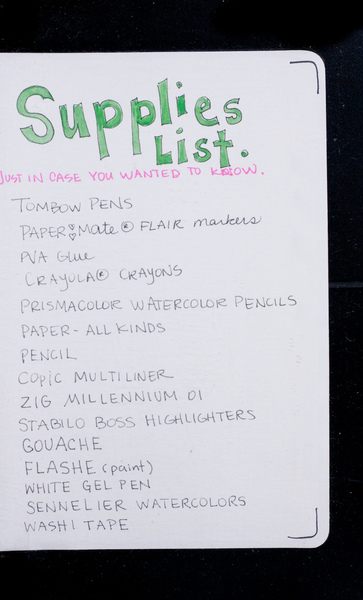 Supplies
List.
JUST IN CASE YOU WANTED TO KNOW.
TOMBOW PENS
PAPER Mate® FLAIR markers
PVA GLUE
CRAYOLA® CRAYONS
PRISMACOLOR WATERCOLOR PENCILS
PAPER - ALL KINDS
PENCIL
COPIC MULTILINER
ZIG MILLENNIUM 01
STABILO BOSS HIGHLIGHTERS
GOUACHE
FLASHE (paint)
WHITE GEL PEN
SENNELIER WATERCOLORS
WASHI TAPE